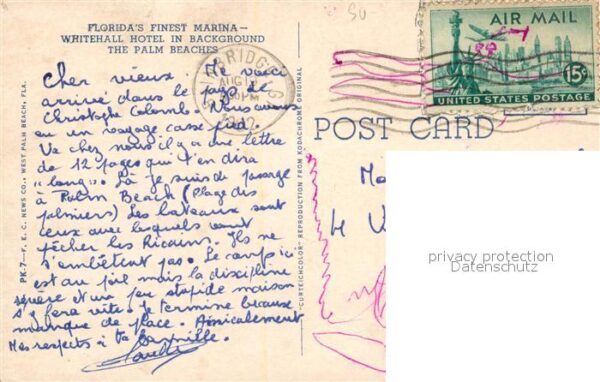 FLORIDA'S FINEST MARINA—
WHITEHALL HOTEL IN BACKGROUND
THE PALM BEACHES
Cher vieux. Me voici
arrivé dans le pays de
Christophe Colomb. Nous avons
eu un voyage casse pied.
Va chez nous il y a une lettre
de 12 pages qui t'en dira
"long". Là je suis de passage
à Palm Beach (Plage des
palmiers) Les bateaux sont
ceux avec lesquels vont
pêcher les Ricains. Ils ne
s'embêtent pas. Le camp ici
est au poil mais la discipline
sévère et un peu stupide maison
s'y fera vite. Je termine beaux
manque de place. Amicalement
Mes respects à ta famille.
PK-7—F. E. C. NEWS CO., WEST PALM BEACH, FLA.
"CURTEICHCOLOR" REPRODUCTION FROM KODACHROME ORIGINAL
AUG
SU
AIR MAIL
15¢
UNITED STATES POSTAGE
POST CARD
4
privacy protection
Datenschutz